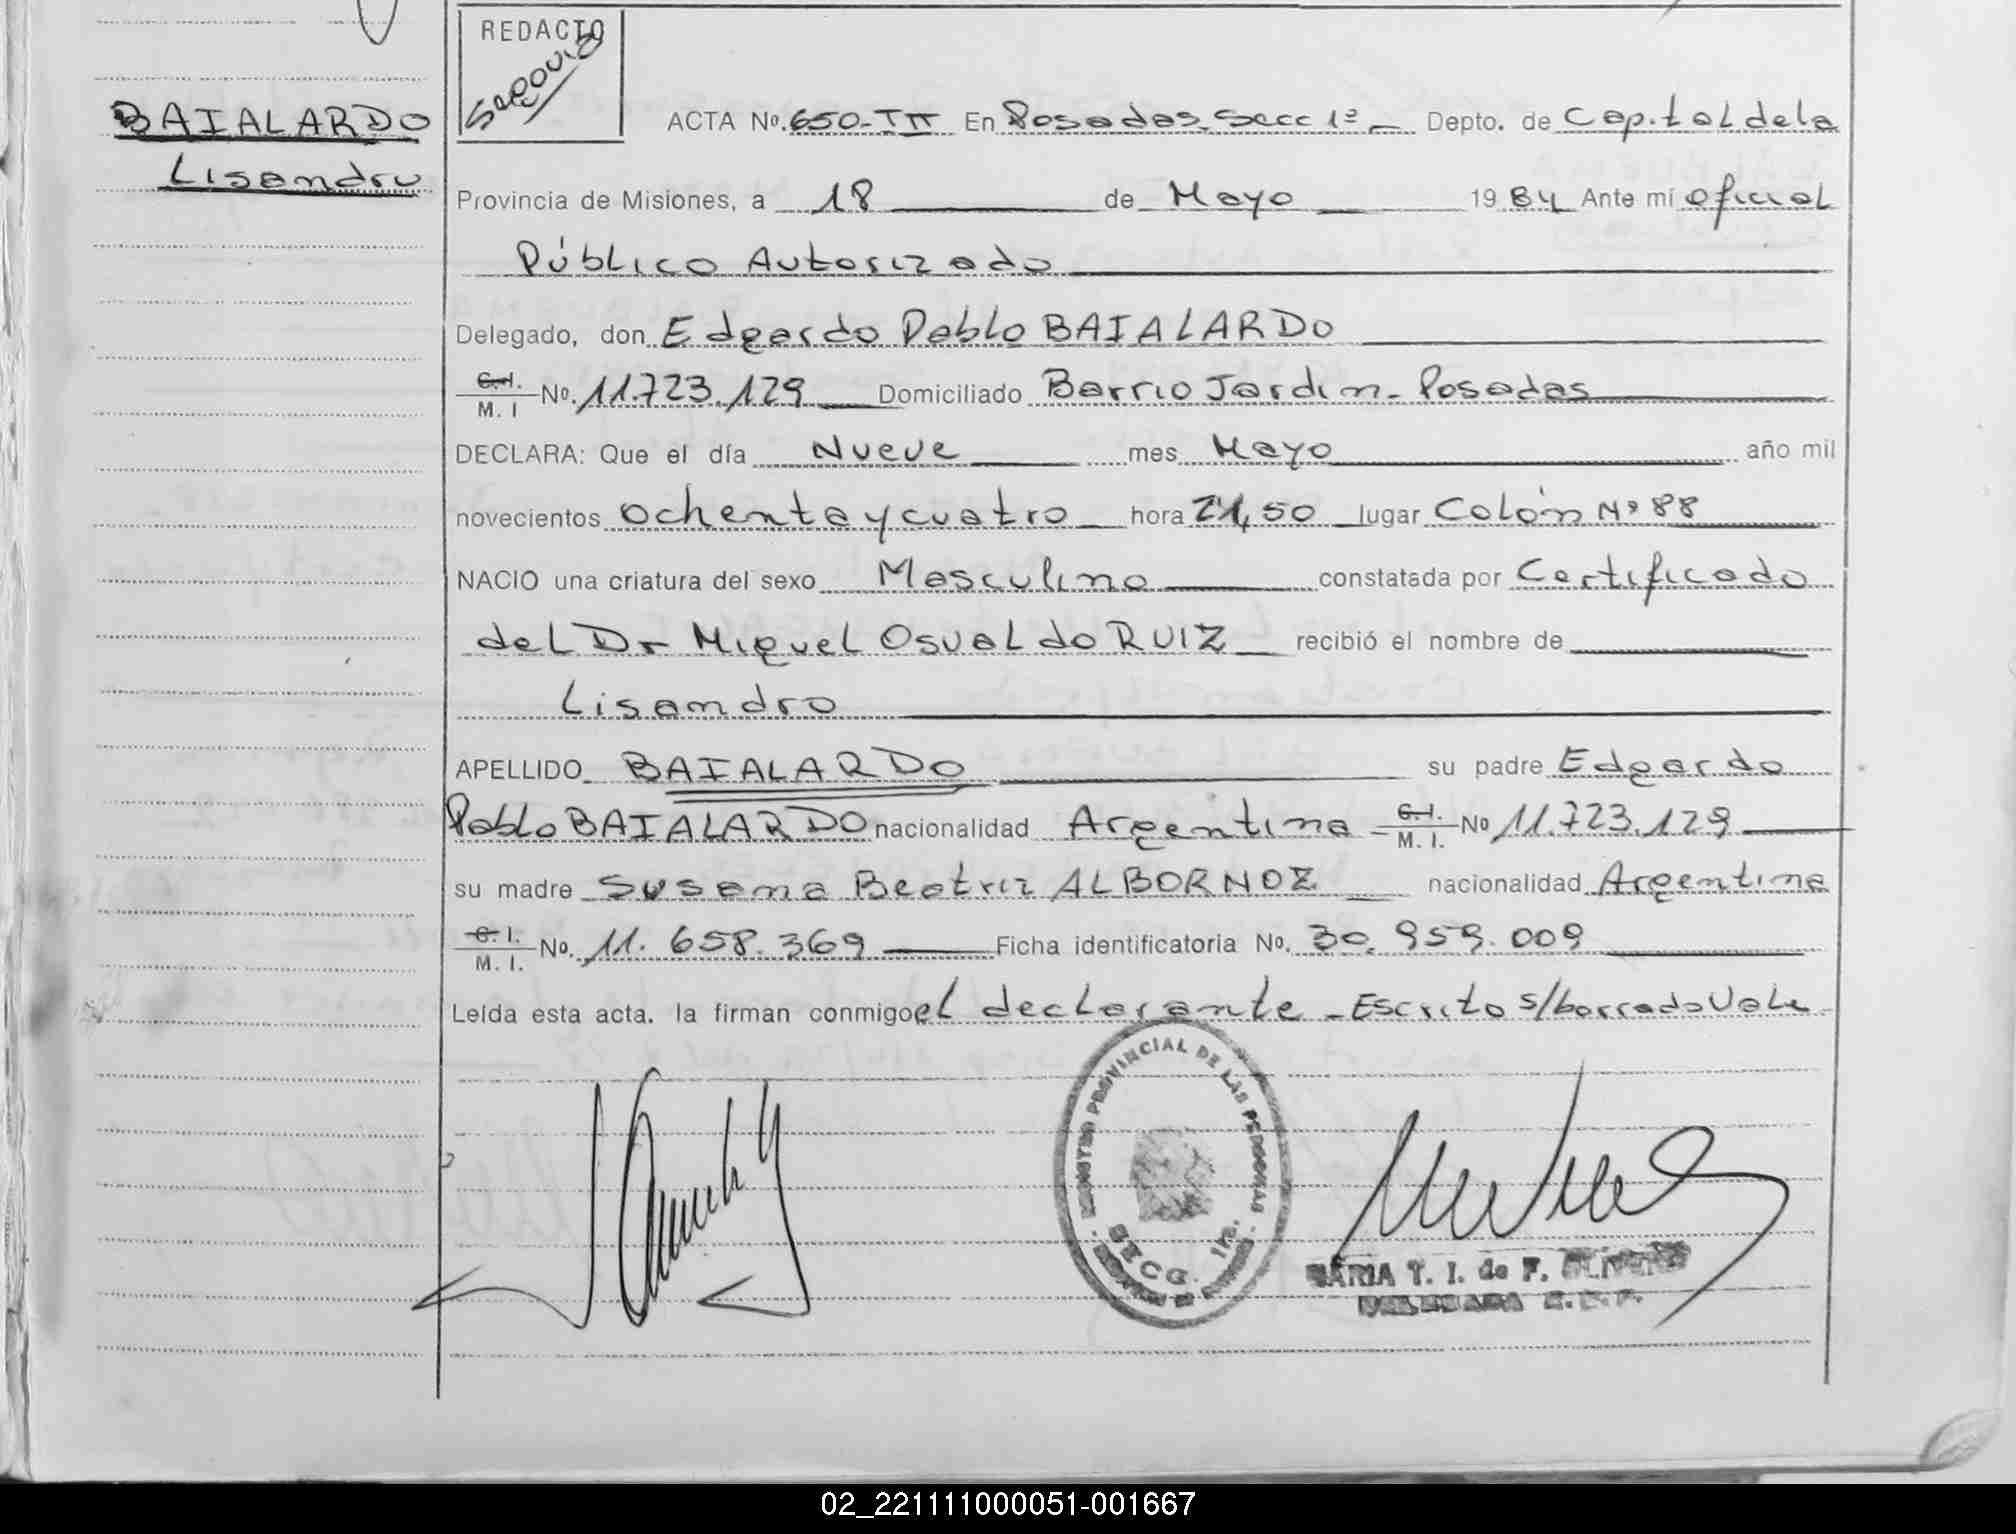 REDACTO
BAIALARDO
Lisandro
ACTA No. 650-TII En Posadas, Secc 1ª Depto. de Capital de la
Provincia de Misiones, a 18 de Mayo 1984 Ante mí oficial
Público Autorizado
Delegado, don Edgardo Pablo BAIALARDO
C.I. M. I No. 11.723.129 Domiciliado Barrio Jardín - Posadas
DECLARA: Que el día Nueve mes Mayo año mil
novecientos ochenta y cuatro hora 21,50 lugar Colón Nº 88
NACIO una criatura del sexo Masculino constatada por Certificado
del Dr Miguel Osvaldo RUIZ recibió el nombre de
Lisandro
APELLIDO BAIALARDO su padre Edgardo
Pablo BAIALARDO nacionalidad Argentina C.I. M. I. No 11.723.129
su madre Susana Beatriz ALBORNOZ nacionalidad Argentina
C.I. M. I. No. 11.658.369 Ficha identificatoria No. 30.959.009
Leída esta acta. la firman conmigo el declarante - Escrito s/borrado Vale
REGISTRO PROVINCIAL DE LAS PERSONAS
SECC. 1ra.
MARIA T. I. de F.
02_221111000051-001667